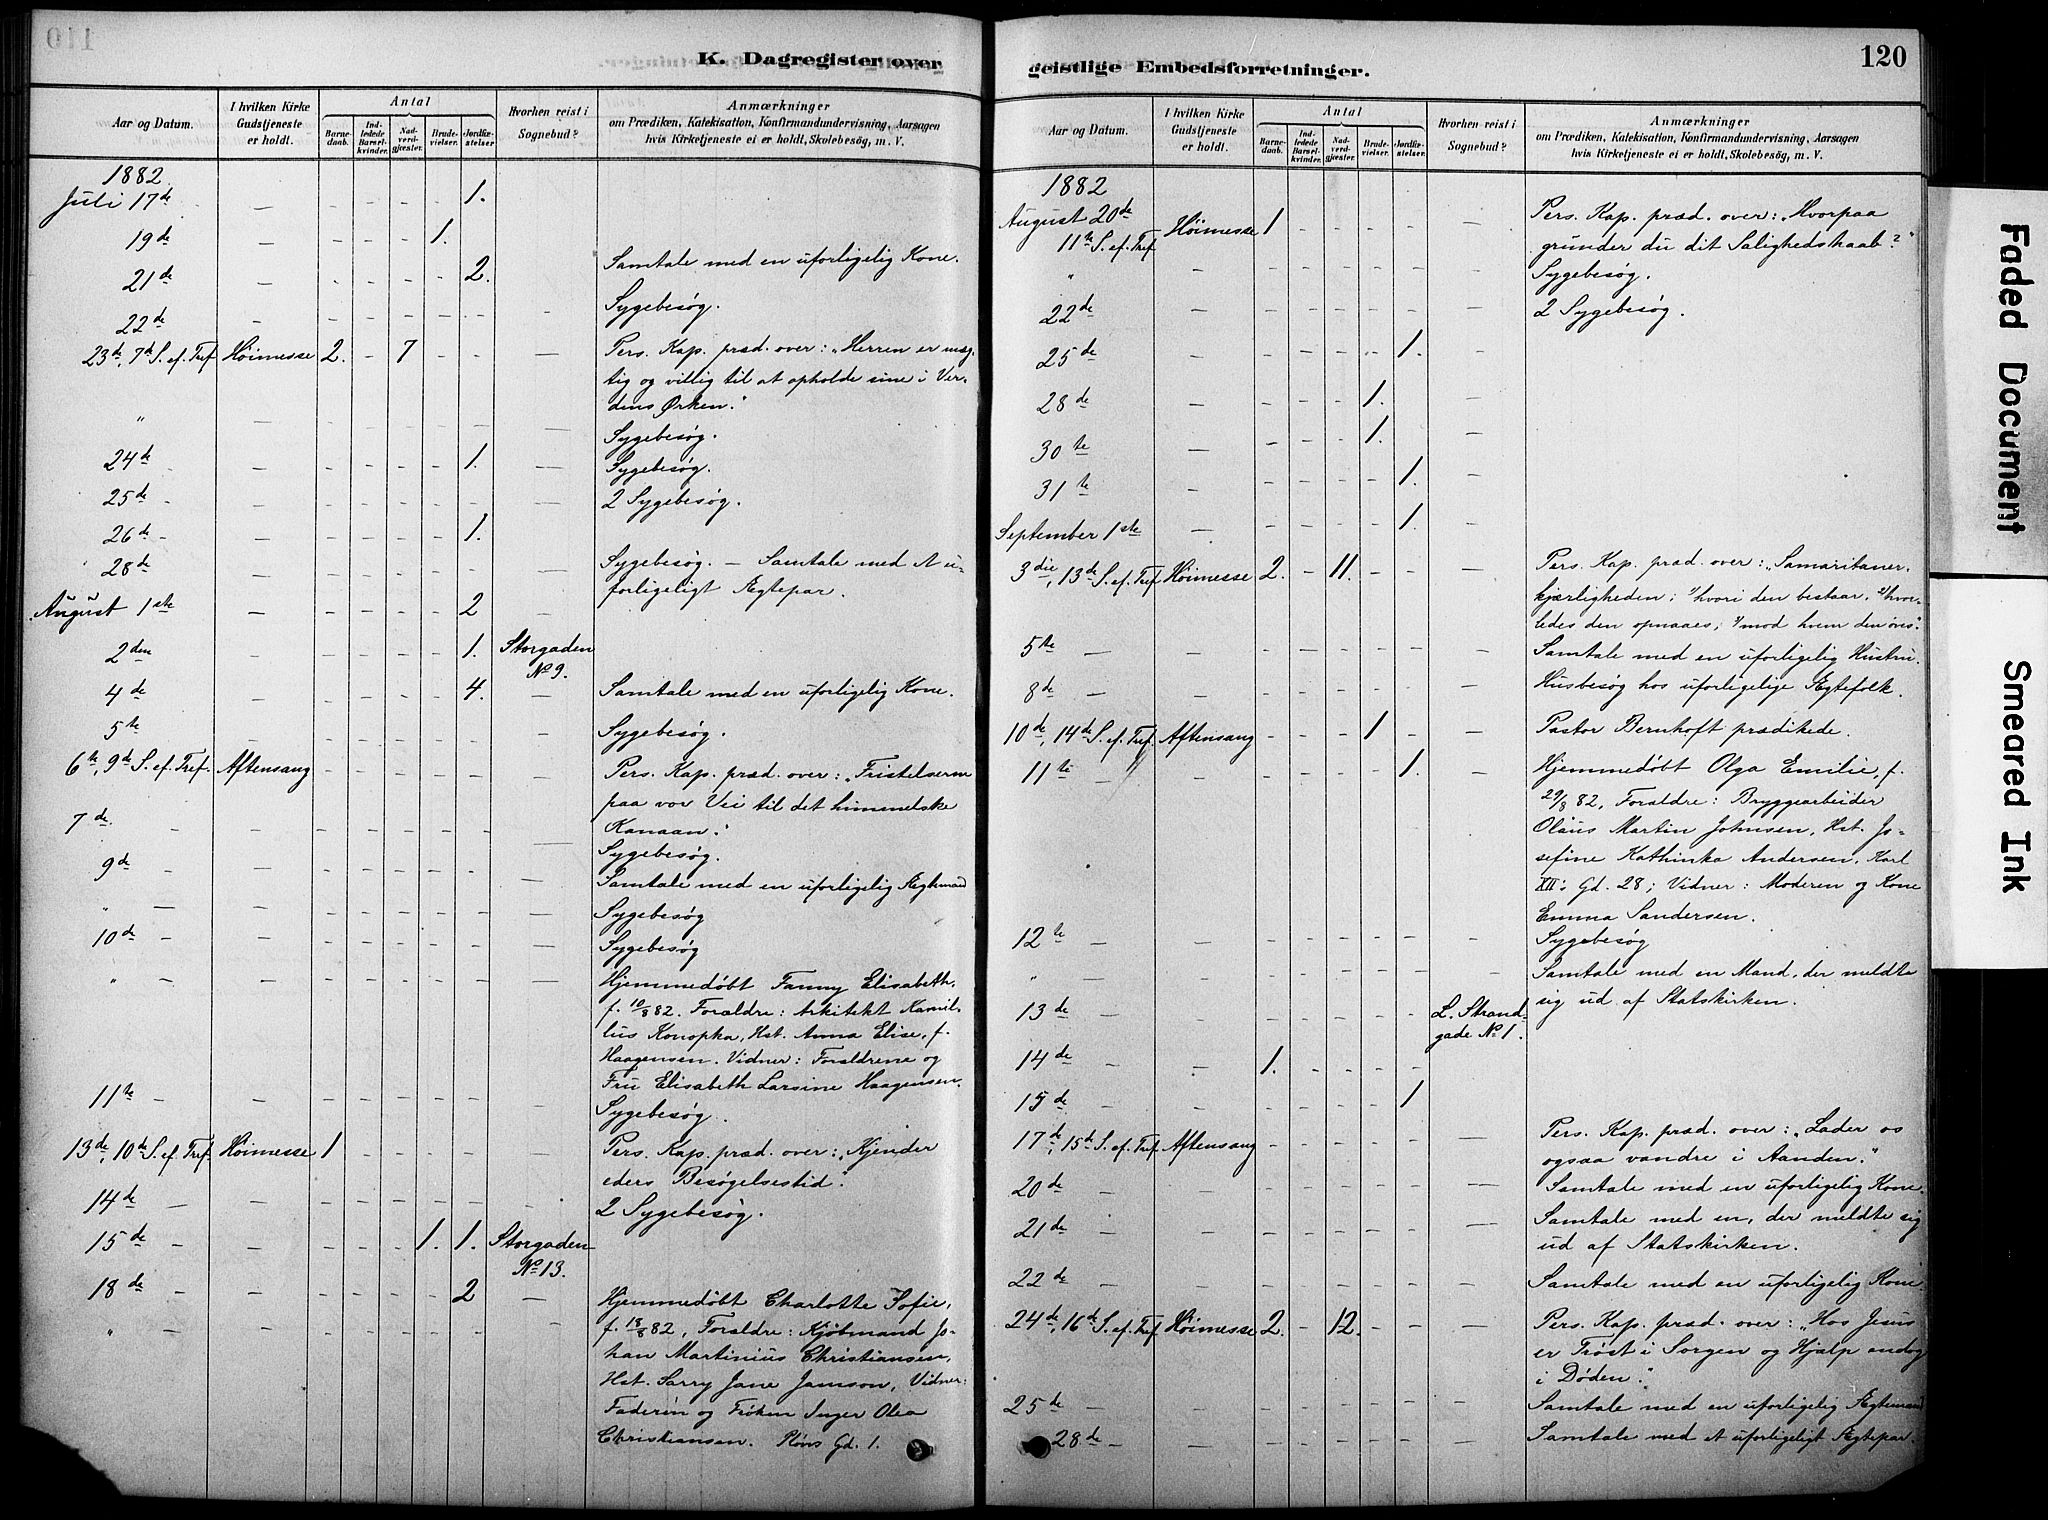 K. Dagregister over
Aar og Datum. I hvilken Kirke Gudstjeneste er holdt. Antal Barnedaab. Indledede Barselkvinder. Nadverdgjæster. Brudevielser. Jordfæstelser Hvorhen reist i Sognebud? Anmærkninger om Prædiken, Katekisation, Konfirmandundervisning, Aarsagen hvis Kirketjeneste ei er holdt, Skolebesøg, m. V.
1882
Juli 17de — 1.
19de — 1.
21de — 2. Samtale med en uforligelig Kone.
22de — Sygebesøg.
23de, 7de S. ef. Tref. Høimesse 2. - 7 - - — Pers. Kap. præd. over: „Herren er mæg-
tig og villig til at opholde sine i Ver-
dens Ørken."
" — Sygebesøg.
24de — 1. — Sygebesøg.
25de — 2 Sygebesøg.
26de — 1.
28de — Sygebesøg. — Samtale med et u-
forligeligt Ægtepar.
August 1ste — 2
2den — 1. Storgaden
No 9.
4de — 4. — Samtale med en uforligelig Kone.
5te — Sygebesøg.
6te, 9de S. ef. Tref. Aftensang — Pers. Kap. præd. over: „Fristelserne
paa vor Vei til det himmelske
Kanaan."
7de — Sygebesøg.
9de — Samtale med en uforligelig Ægtemand
" — Sygebesøg
10de — Sygebesøg
" — Hjemmedøbt Fanny Elisabeth,
f. 10/8 82. Forældre: Arkitekt Kamil-
lus Konopka, Hst. Anna Elise, f.
Haagensen. Vidner: Forældrene og
Fru Elisabeth Larsine Haagensen.
11te — Sygebesøg.
13de, 10de S. ef. Tref. Høimesse 1 — Pers. Kap. præd. over: „Kjender
eders Besøgelsestid."
14de — 2 Sygebesøg.
15de — 1. 1. Storgaden
No 13.
18de — 2 —
" Hjemmedøbt Charlotte Sofie,
f. 18/8 82, Forældre: Kjøbmand Jo-
han Martinius Christiansen,
Hst. Sarry Jane Jamson, Vidner:
Faderen og Frøken Inger Olea
Christiansen. Pløns Gd. 1.
geistlige Embedsforretninger.
120
Aar og Datum. I hvilken Kirke Gudstjeneste er holdt. Antal Barnedaab. Indledede Barselkvinder. Nadverdgjæster. Brudevielser. Jordfæstelser. Hvorhen reist i Sognebud? Anmærkninger om Prædiken, Katekisation, Konfirmandundervisning, Aarsagen hvis Kirketjeneste ei er holdt, Skolebesøg, m. V.
1882
August 20de Høimesse 1 — Pers. Kap. præd. over: „Hvorpaa
11te S. ef. Tref. grunder du dit Salighedshaab?"
" — Sygebesøg.
22de — 2 Sygebesøg.
25de — 1.
28de — 1.
30te — 1.
31te — 1.
September 1ste — 1.
3die, 13de S. ef. Tref. Høimesse 2. - 11. - - — Pers. Kap. præd. over: „Samaritaner-
kjærligheden; 1/ hvori den bestaar, 2/ hvor-
ledes den opnaaes, 3/ mod hvem den øves."
5te — Samtale med en uforligelig Hustru.
8de — Husbesøg hos uforligelige Ægtefolk.
10de, 14de S. ef. Tref. Aftensang 1 — Pastor Bernhoft prædikede.
11te — 1. — Hjemmedøbt Olga Emilie, f.
29/8 82, Forældre: Bryggearbeider
Olaus Martin Johnsen, Hst. Jo-
sefine Kathinka Andersen, Karl
XII: Gd. 28; Vidner: Moderen og Kone
Emma Sandersen.
12te — Sygebesøg
" — Samtale med en Mand, der meldte
sig ud af Statskirken.
13de — L. Strand-
gade No 1.
14de — 1.
15de — 1
17de, 15de S. ef. Tref. Aftensang — Pers. Kap. præd. over: „Lader os
ogsaa vandre i Aanden."
20de — Samtale med en uforligelig Kone.
21de — Samtale med en, der meldte sig
ud af Statskirken.
22de — Samtale med en uforligelig Kone.
24de, 16de S. ef. Tref. Høimesse 2. - 12. - - — Pers. Kap. præd. over: „Hos Jesus
er Trøst i Sorgen og Hjælp endog
i Døden."
25de — Samtale med en uforligelig Ægtemand
28de — Samtale med et uforligeligt Ægtepar.
Faded Document
Smeared Ink